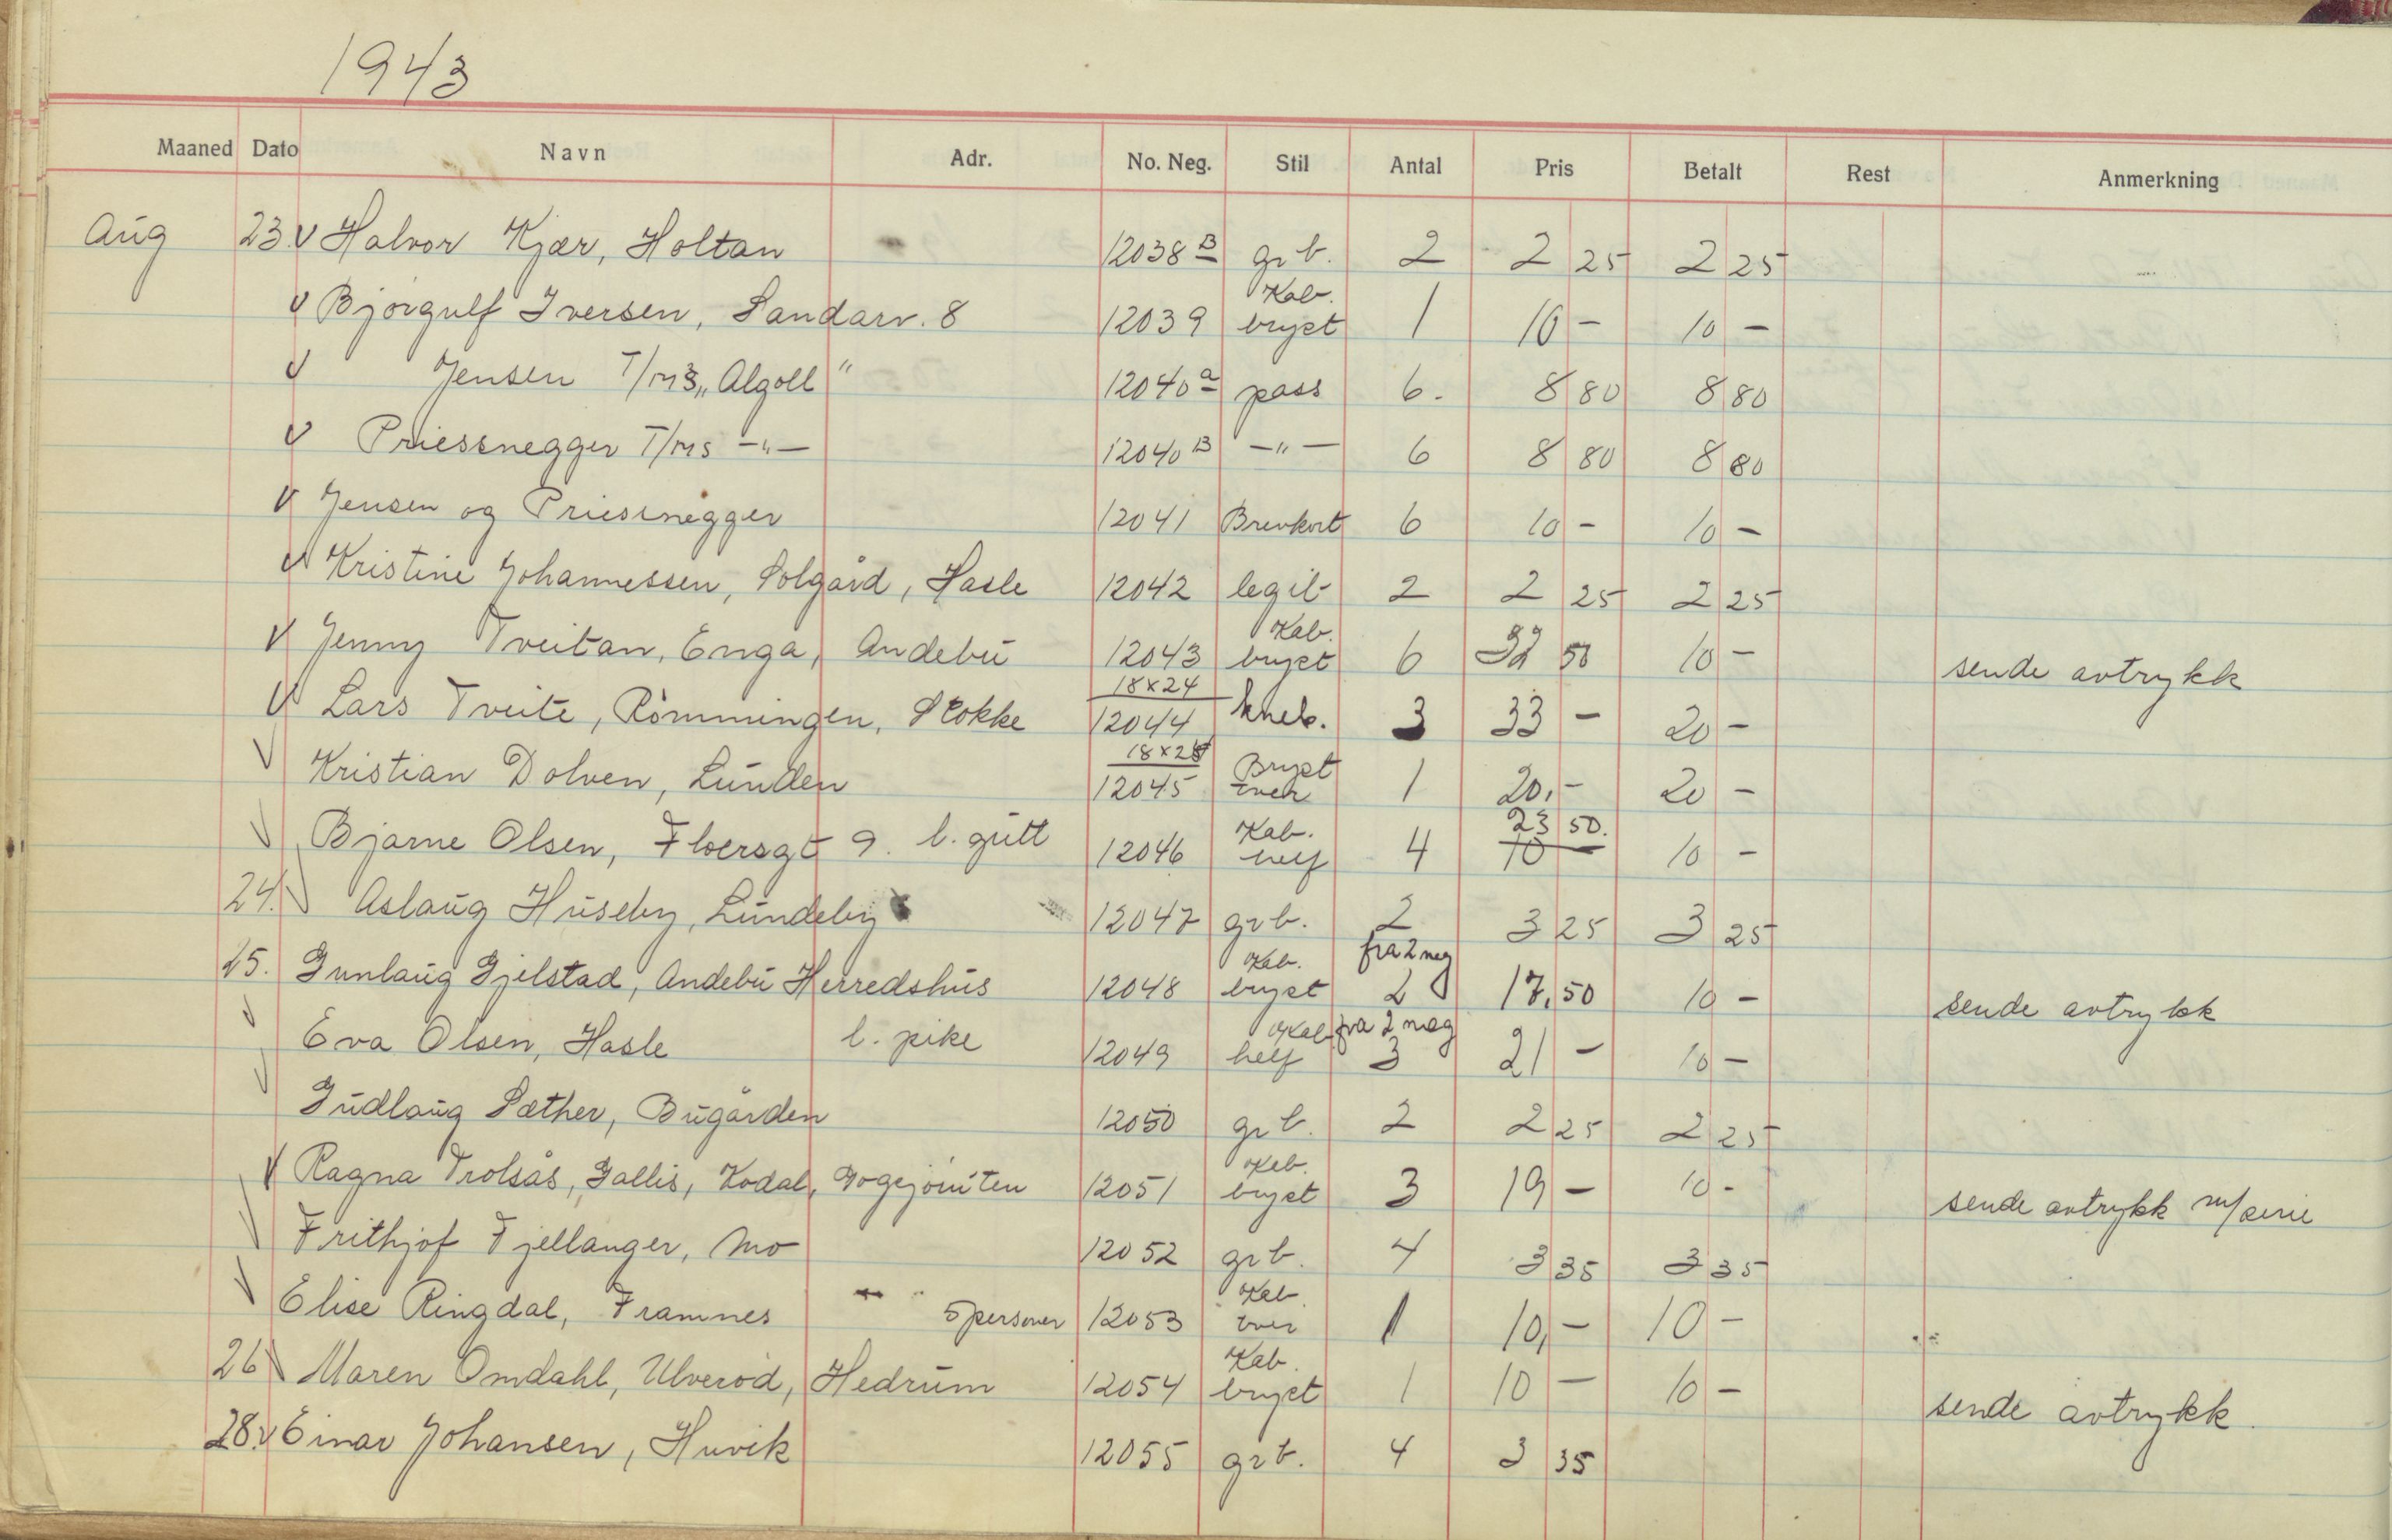 1943
Maaned Dato Navn Adr. No. Neg. Stil Antal Pris Betalt Rest Anmerkning
Aug 23. V Halvor Kjær, Holtan 12038 B grb. 2 2 25 2 25
V Bjørgulf Iversen, Sandarv. 8 12039 Kab. bryst 1 10 - 10 -
V Jensen T/MS „Algoll" 12040 a pass 6. 8 80 8 80
V Priessnegger T/MS -"- 12040 B -"- 6 8 80 8 80
V Jensen og Priessnegger 12041 Brevkort 6 10 - 10 -
V Kristine Johannessen, Solgård, Hasle 12042 legit 2 2 25 2 25
V Jenny Tveitan, Enga, Andebu 12043 Kab. bryst 6 32 50 10 - sende avtrykk
V Lars Tveite, Rømmingen, Stokke 18x24 12044 kneb. 3 33 - 20 -
V Kristian Dolven, Lunden 12045 Bryst tver 1 20,- 20 -
V Bjarne Olsen, Floersgt 9. l. gutt 12046 Kab. helf 4 23 50. 10 - 10 -
24. V Aslaug Huseby, Lundeby 12047 grb. 2 3 25 3 25
25. Gunlaug Gjelstad, Andebu Herredshus 12048 Kab. bryst fra 2 neg 2 17,50 10 - sende avtrykk
V Eva Olsen, Hasle l. pike 12049 Kab. helf fra 2 neg 3 21 - 10 -
V Gudlaug Sæther, Bugården 12050 grb. 2 2 25 2 25
V Ragna Trolsås, Gallis, Kodal, 12051 Kab. bryst 3 19 - 10 - sende avtrykk
V Frithjof Fjellanger, Mo 12052 grb. 4 3 35 3 35
V Elise Ringdal, Framnes 5 personer 12053 Kab. tver 1 10,- 10 -
26 V Maren Omdahl, Ulverød, Hedrum 12054 Kab. bryst 1 10 - 10 - sende avtrykk.
28. V Einar Johansen, Huvik 12055 grb. 4 3 35